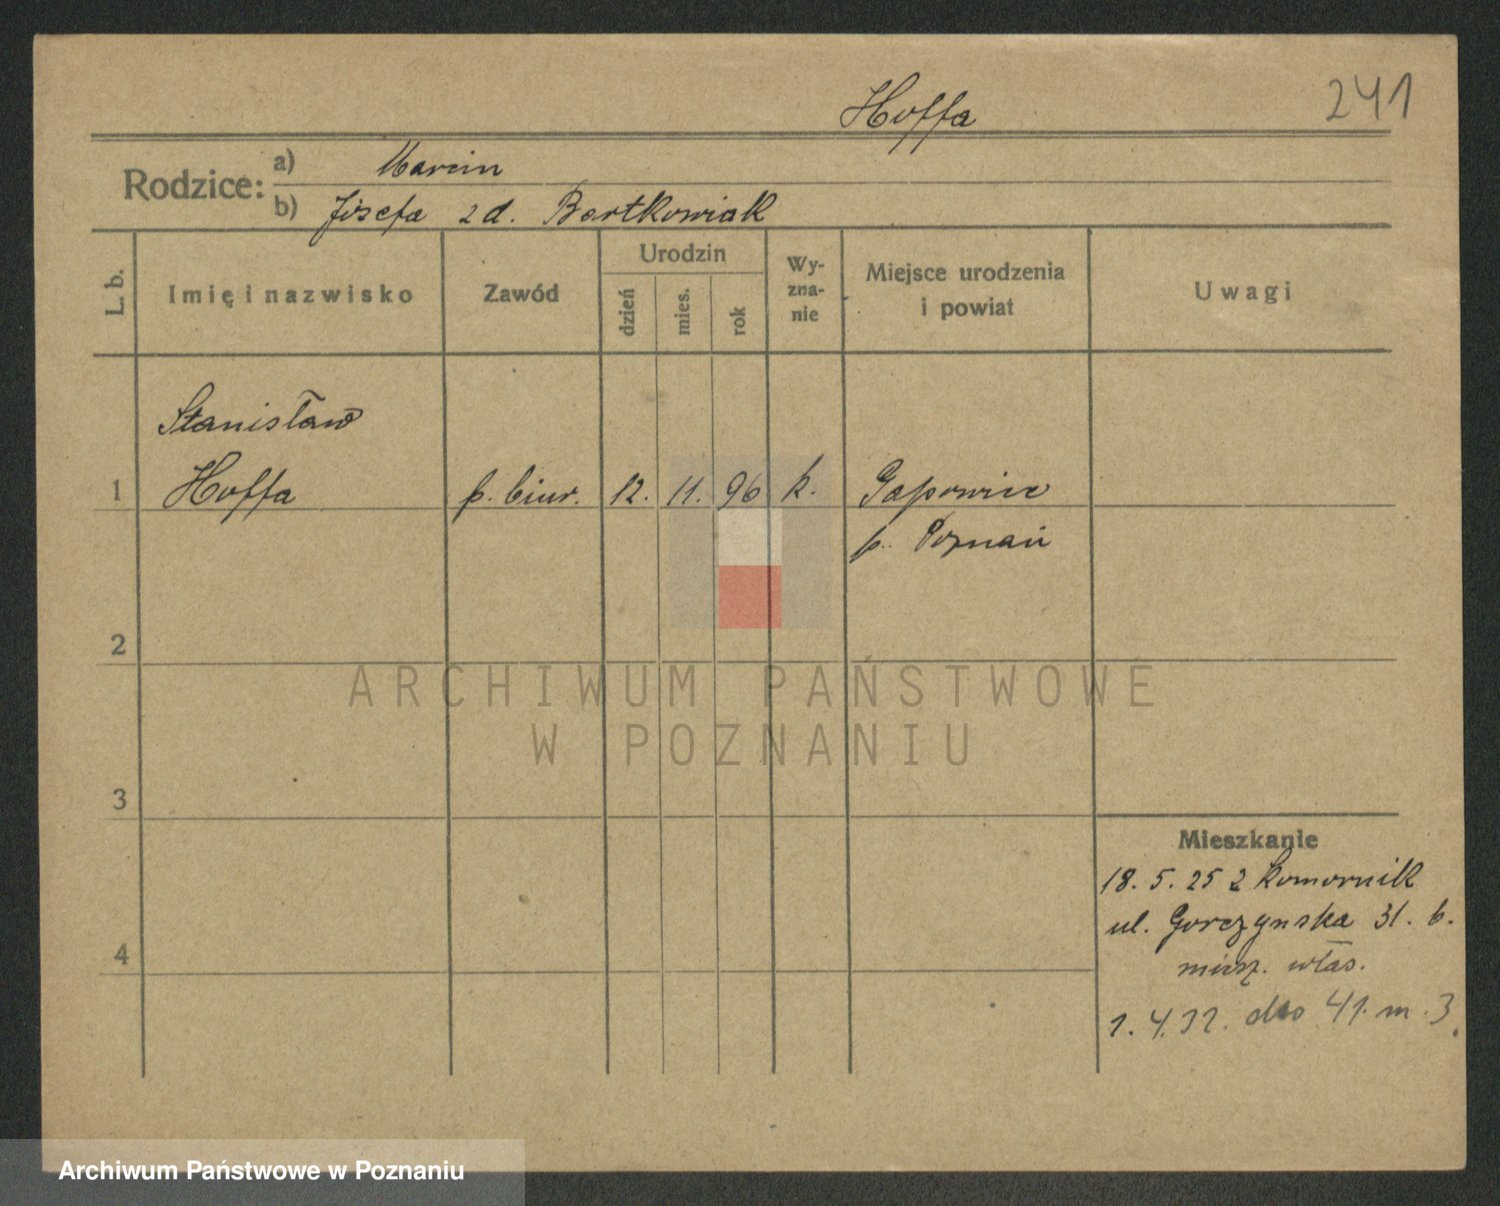 Hoffa
241
Rodzice:
a) Marcin
b) Józefa zd. Bartkowiak
L. b.
Imię i nazwisko
Zawód
Urodzin
dzień
mies.
rok
Wy-
zna-
nie
Miejsce urodzenia
i powiat
Uwagi
Stanisław
1 Hoffa p. biur. 12. 11. 96 k. Sapowice
p. Poznań
2
ARCHIWUM PAŃSTWOWE
W POZNANIU
3
Mieszkanie
18. 5. 25 z Komornik
ul. Gorczynska 31. b.
4
miesz. włas.
1. 4. 32. dto 41. m. 3.
Archiwum Państwowe w Poznaniu